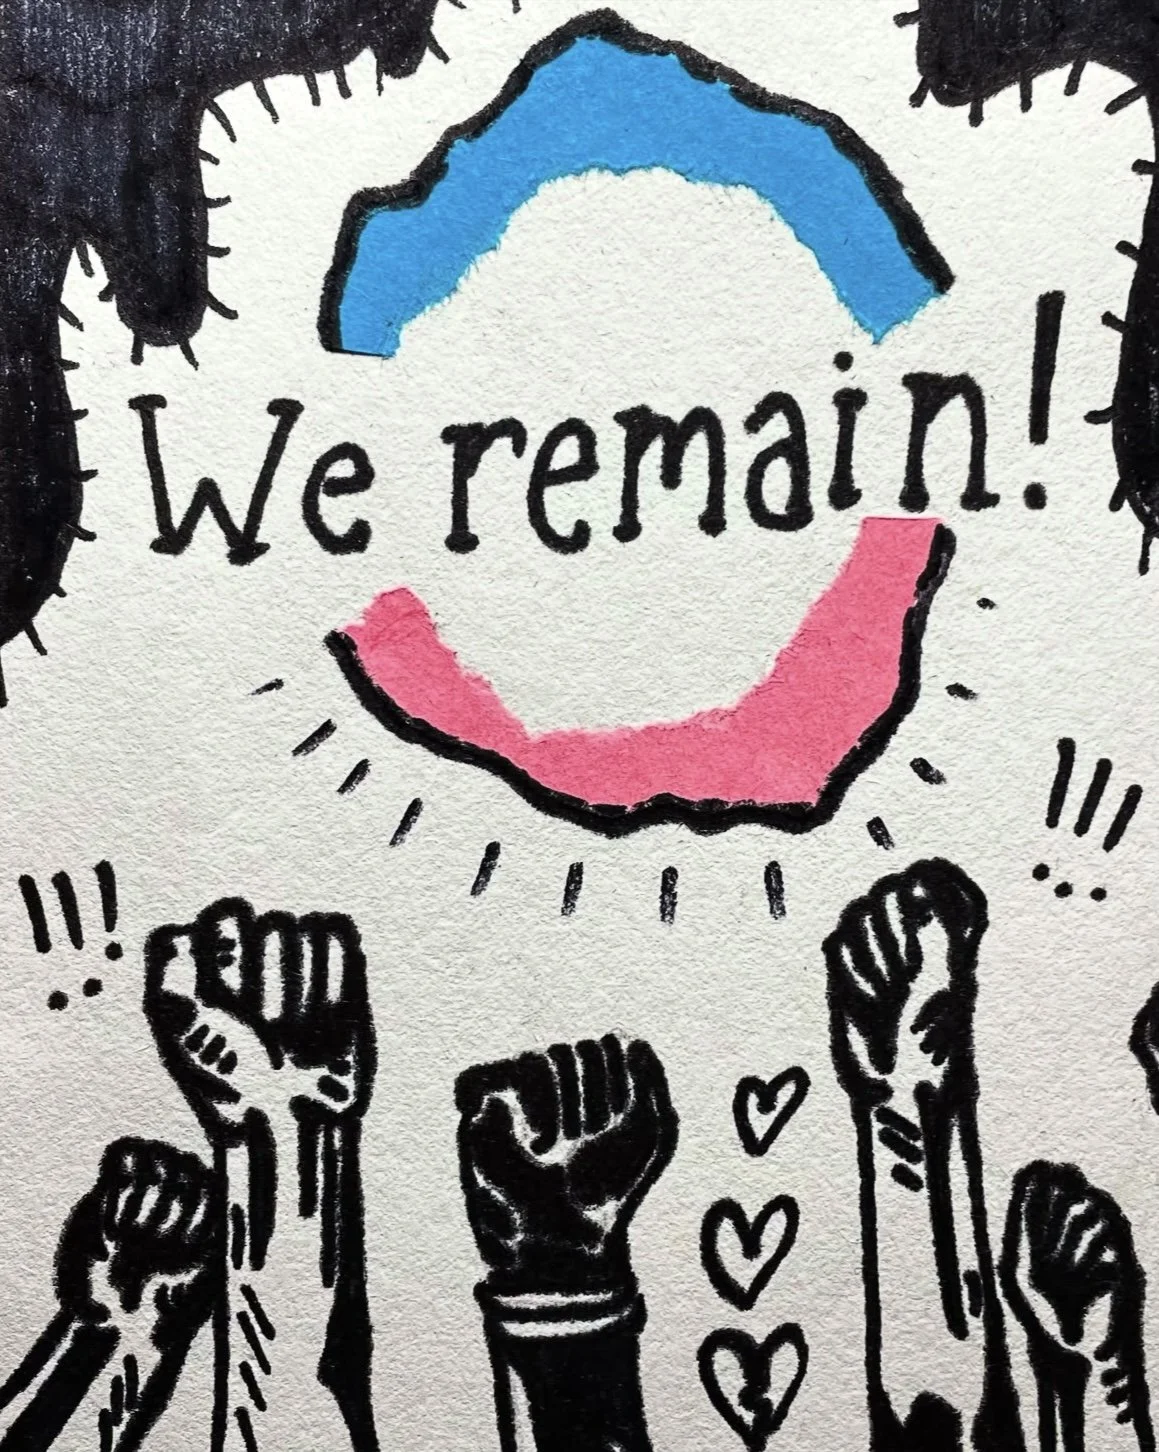 We remain!
!!!
!!!